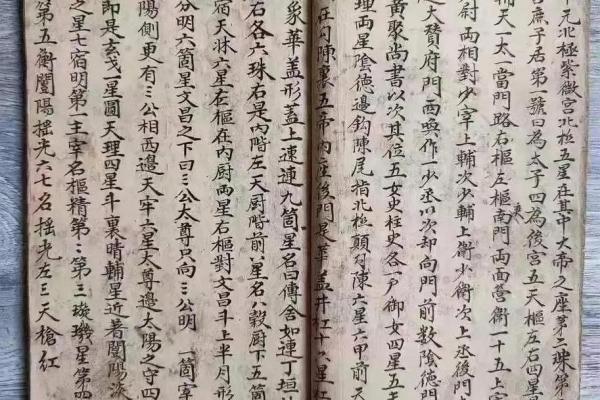 中元北極紫微宮北極五星在其中大帝之座第二珠第
庶子居第號曰為太子四為後宮五天樞左右四星是
輔天一太一當門路右樞左樞夾南門兩面營衛一十五上宰
尉兩相對少宰上輔次少輔上衛少衛次上丞後門
之大赞府門西與作一少丞以次却向門前数陰德門
黃聚尚書以次其位五女史柱史各一戶御女四星五天
理两星陰德邊鈎陳尾指北極顛勾陳六星六甲前天
在勾陳裏五帝內座後門是華盖并杠十六星杠
象華盖形盖上連連九箇星名曰傳舍如連丁垣
右各六珠右是內階左天厨階前八星名八穀厨下五箇
宿天牀六星左樞在內厨两星右樞對文昌斗上半月形
分明六箇星文昌之下曰三公太尊只向三公明一箇宰
陽側更有三公相西邊天牢六星太尊邊太陽之守四
即是玄戈一星圓天理四星斗裏晴輔星近著闓陽淡
之星七宿明第一主宰名樞精第二第三璇璣星第四
第五衡闓陽搖光六七名搖光左三天槍紅